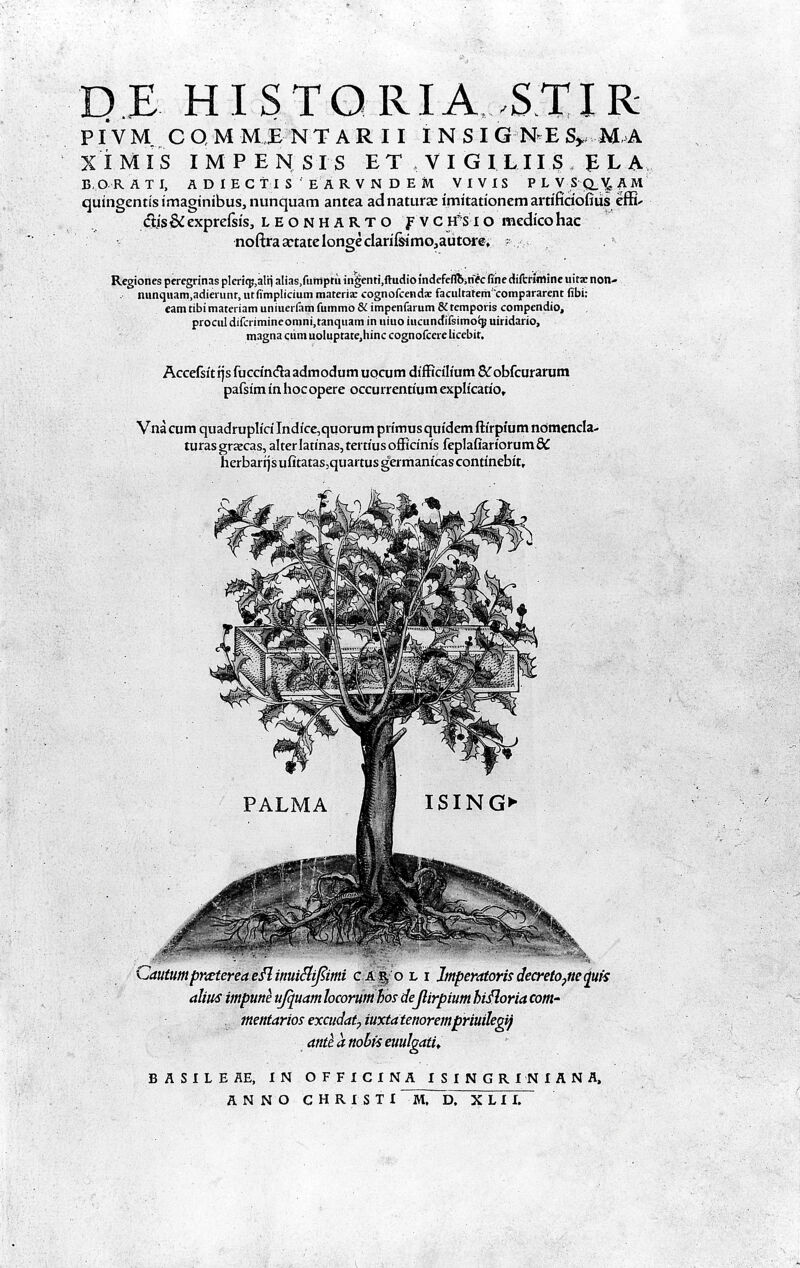 DE HISTORIA STIR-
PIVM COMMENTARII INSIGNES, MA
XIMIS IMPENSIS ET VIGILIIS ELA
BORATI, ADIECTIS EARVNDEM VIVIS PLVSQVAM
quingentis imaginibus, nunquam antea ad naturæ imitationem artificiosius effi-
ctis & expreſsis, LEONHARTO FVCHSIO medico hac
noſtra ætate longè clariſsimo, autore.
Regiones peregrinas pleriqꝫ, alij alias, ſumptu ingenti, ſtudio indefeſſo, nec ſine diſcrimine uitæ non-
nunquam, adierunt, ut ſimplicium materiæ cognoſcendæ facultatem compararent ſibi:
eam tibi materiam uniuerſam ſummo & impenſarum & temporis compendio,
procul diſcrimine omni, tanquam in uiuo iucundiſsimoqꝫ uiridario,
magna cum uoluptate, hinc cognoſcere licebit.
Acceſsit ijs ſuccincta admodum uocum difficilium & obſcurarum
paſsim in hoc opere occurrentium explicatio.
Vnà cum quadruplici Indice, quorum primus quidem ſtirpium nomencla-
turas græcas, alter latinas, tertius officinis ſeplaſiariorum &
herbarijs uſitatas, quartus germanicas continebit.
PALMA ISING
Cautum præterea eſt inuictiſsimi CAROLI Imperatoris decreto, ne quis
alius impunè uſquam locorum hos de ſtirpium hiſtoria com-
mentarios excudat, iuxta tenorem priuilegij
antè à nobis euulgati.
BASILEAE, IN OFFICINA ISINGRINIANA,
ANNO CHRISTI M. D. XLII.